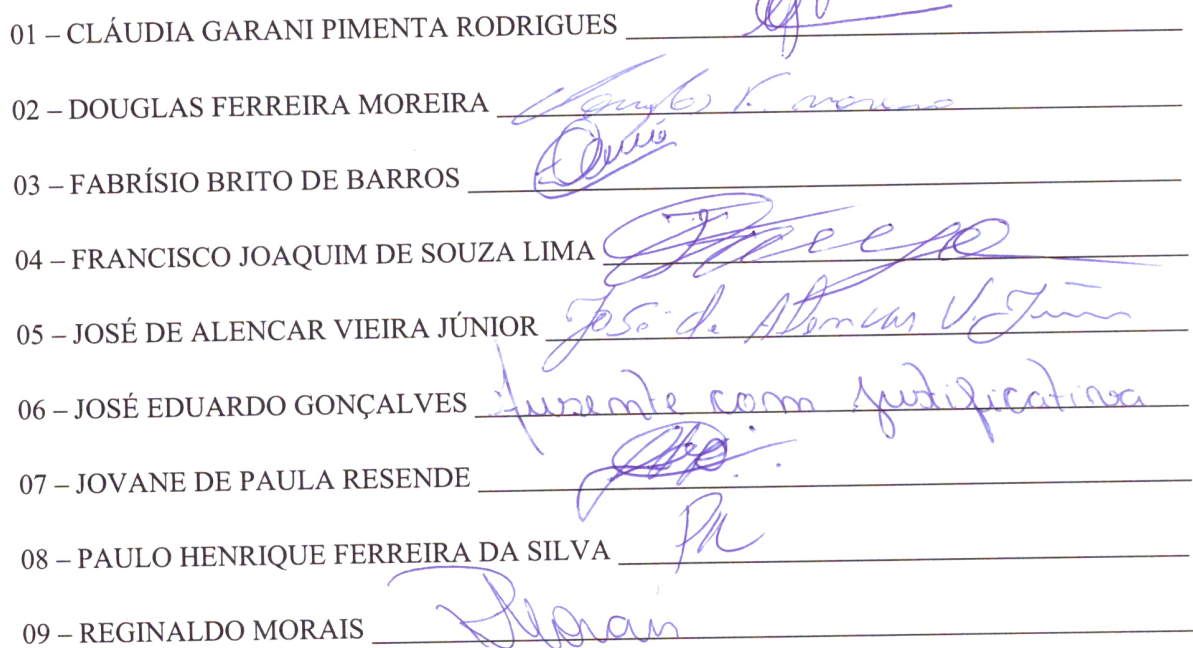 01 – CLÁUDIA GARANI PIMENTA RODRIGUES
02 – DOUGLAS FERREIRA MOREIRA Douglas F. moreira
03 – FABRÍSIO BRITO DE BARROS
04 – FRANCISCO JOAQUIM DE SOUZA LIMA
05 – JOSÉ DE ALENCAR VIEIRA JÚNIOR José de Alencar V. Júnior
06 – JOSÉ EDUARDO GONÇALVES Ausente com justificativa
07 – JOVANE DE PAULA RESENDE
08 – PAULO HENRIQUE FERREIRA DA SILVA
09 – REGINALDO MORAIS RMorais